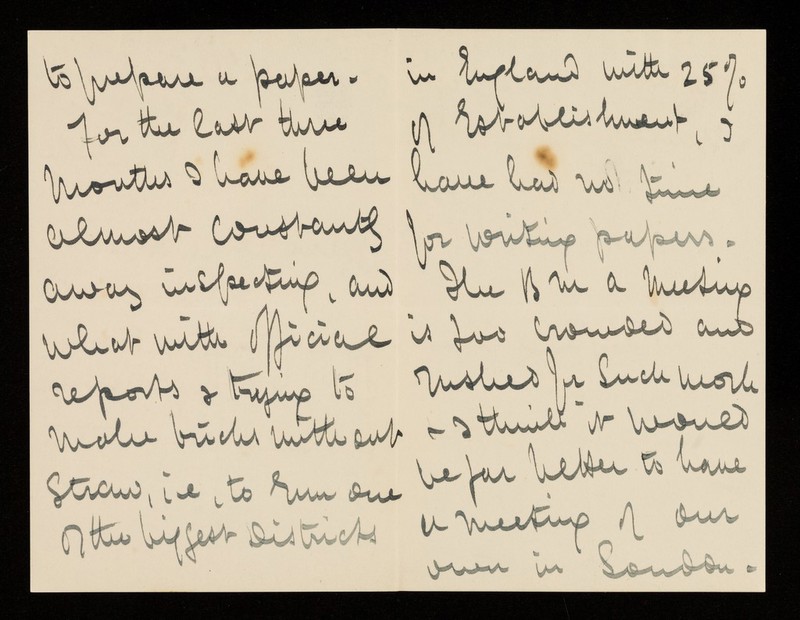 to prepare a paper.
For the last three
months I have been
almost constantly
away inspecting, and
what with official
reports & trying to
make bricks without
straw, i.e, to run one
of the biggest Districts
in England with 25%
of Establishment, I
have had no time
for writing papers.
The B M A Meeting
is too crowded and
rushed for such work
- I think it would
be far better to have
a meeting of our
own in London.